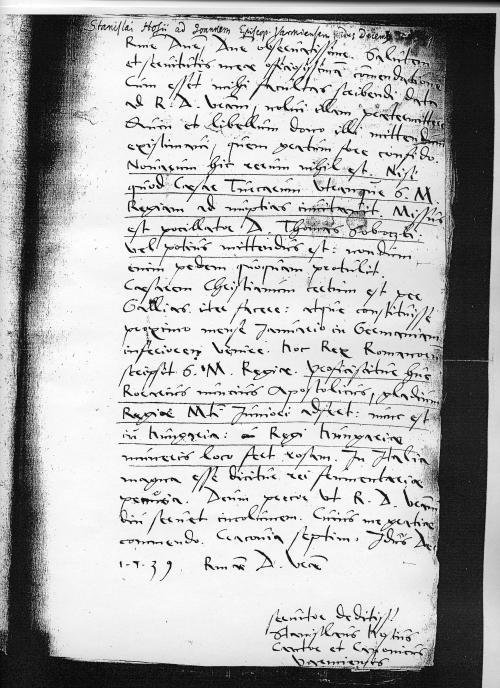 Stanislai Hosii ad Joannem Episcop. Varmiensem
Rme Dne Dne obseruatissime Salutem
et seruitutis meae officiosissimam comendatione
Cum esset mihi facultas scribendi data
ad R. D. Vram, nolui illam praetermittere
Quin et libellum dono illi mittendum
existimaui, quem gratum fore confido.
Nouarum hic rerum nihil est. Nisi
quod Caesar Turcarum utranque S. M
Regiam ad nuptias inuitauit. Missus
est pocillator D. Thomas Soboczki
vel potius mittendus est: nondum
enim pedem quoquam protulit
Caesarem Christianum certum est per
Gallias iter facere: atque constituisse
proximo mense Januario in Germaniam
inferiorem venire. Hoc Rex Romanorum
scripsit S. M. Regiae.
Rorarius nuncius Apostolicus, gladium
Regiae Mti Juniori adfert: nunc est
in Hungaria: Regi Hungariae
muneris loco fert rosam. In Italia
magna esse dicitur rei frumentariae
penuria. Deum precor ut R. D. Vram
diu seruet incolumem. Cuius me gratiae
commendo. Cracouia septim. Idus De
1.5.39 Rmae D. Vrae
seruitor deditiss
Stanislaus Hosius
Cantor et Canonicus
Varmiensis